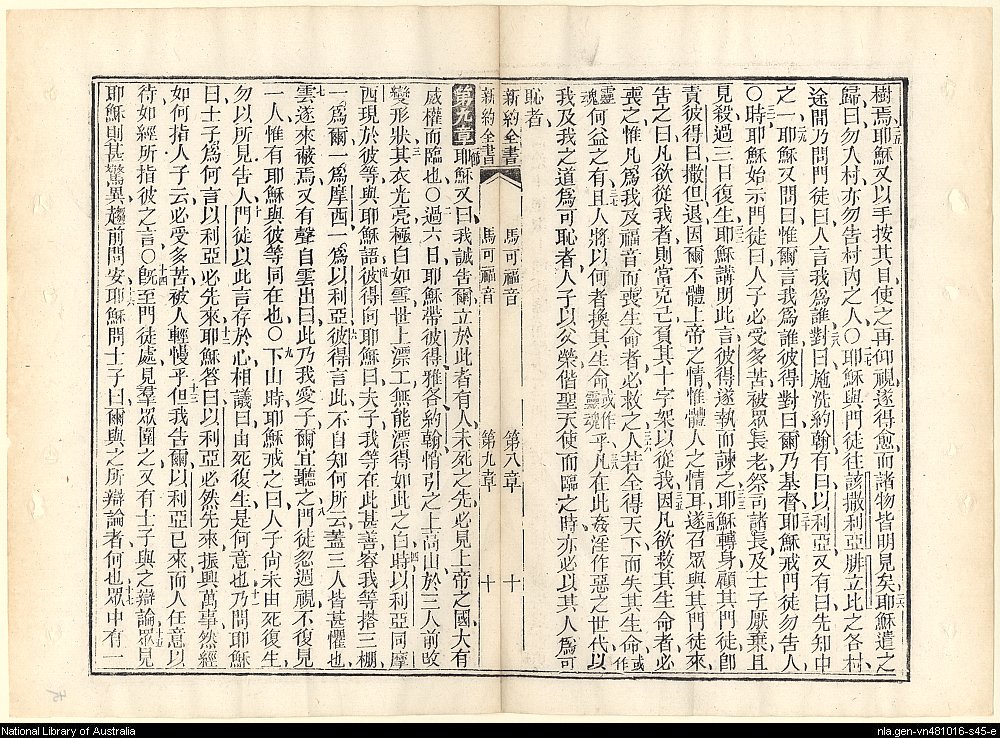 樹焉耶穌又以手按其目使之再仰視遂得愈而諸物皆明見矣耶穌遣之
歸曰勿入村亦勿告村內之人〇耶穌與門徒往該撒利亞腓立此之各村
途間乃問門徒曰人言我爲誰對曰施洗約翰有曰以利亞又有曰先知中
之一耶穌又問曰惟爾言我爲誰彼得對曰爾乃基督耶穌戒門徒勿告人
〇時耶穌始示門徒曰人子必受多苦被眾長老祭司諸長及士子厭棄且
見殺過三日復生耶穌講明此言彼得遂執而諫之耶穌轉身顧其門徒卽
責彼得曰撒但退因爾不體上帝之情惟體人之情耳遂召眾與其門徒來
告之曰凡欲從我者則當克己負其十字架以從我因凡欲救其生命者必
喪之惟凡爲我及福音而喪生命者必救之人若全得天下而失其生命或作
靈魂何益之有且人將以何者換其生命或作靈魂乎凡在此姦淫作惡之世代以
我及我之道爲可恥者人子以父榮偕聖天使而臨之時亦必以其人爲可
恥者
新約全書 馬可福音 第八章 十
新約全書 馬可福音 第九章 十
第九章 耶穌又曰我誠告爾立於此者有人未死之先必見上帝之國大有
威權而臨也〇過六日耶穌帶彼得雅各約翰悄引之上高山於三人前改
變形狀其衣光亮極白如雪世上漂工無能漂得如此之白時以利亞同摩
西現於彼等與耶穌語彼得向耶穌曰夫子我等在此甚善容我等搭三棚
一爲爾一爲摩西一爲以利亞彼得言此不自知何所云蓋三人皆甚懼也
雲遂來蔽焉又有聲自雲出曰此乃我愛子爾宜聽之門徒忽週視不復見
一人惟有耶穌與彼等同在也〇下山時耶穌戒之曰人子尙未由死復生
勿以所見告人門徒以此言存於心相議曰由死復生是何意也乃問耶穌
曰士子爲何言以利亞必先來耶穌答曰以利亞必然先來振興萬事然經
如何指人子云必受多苦被人輕慢乎但我告爾以利亞已來而人任意以
待如經所指彼之言〇旣至門徒處見羣眾圍之又有士子與之辯論眾見
耶穌則甚驚異趨前問安耶穌問士子曰爾與之所辯論者何也眾中有一
National Library of Australia
nla.gen-vn481016-s45-e